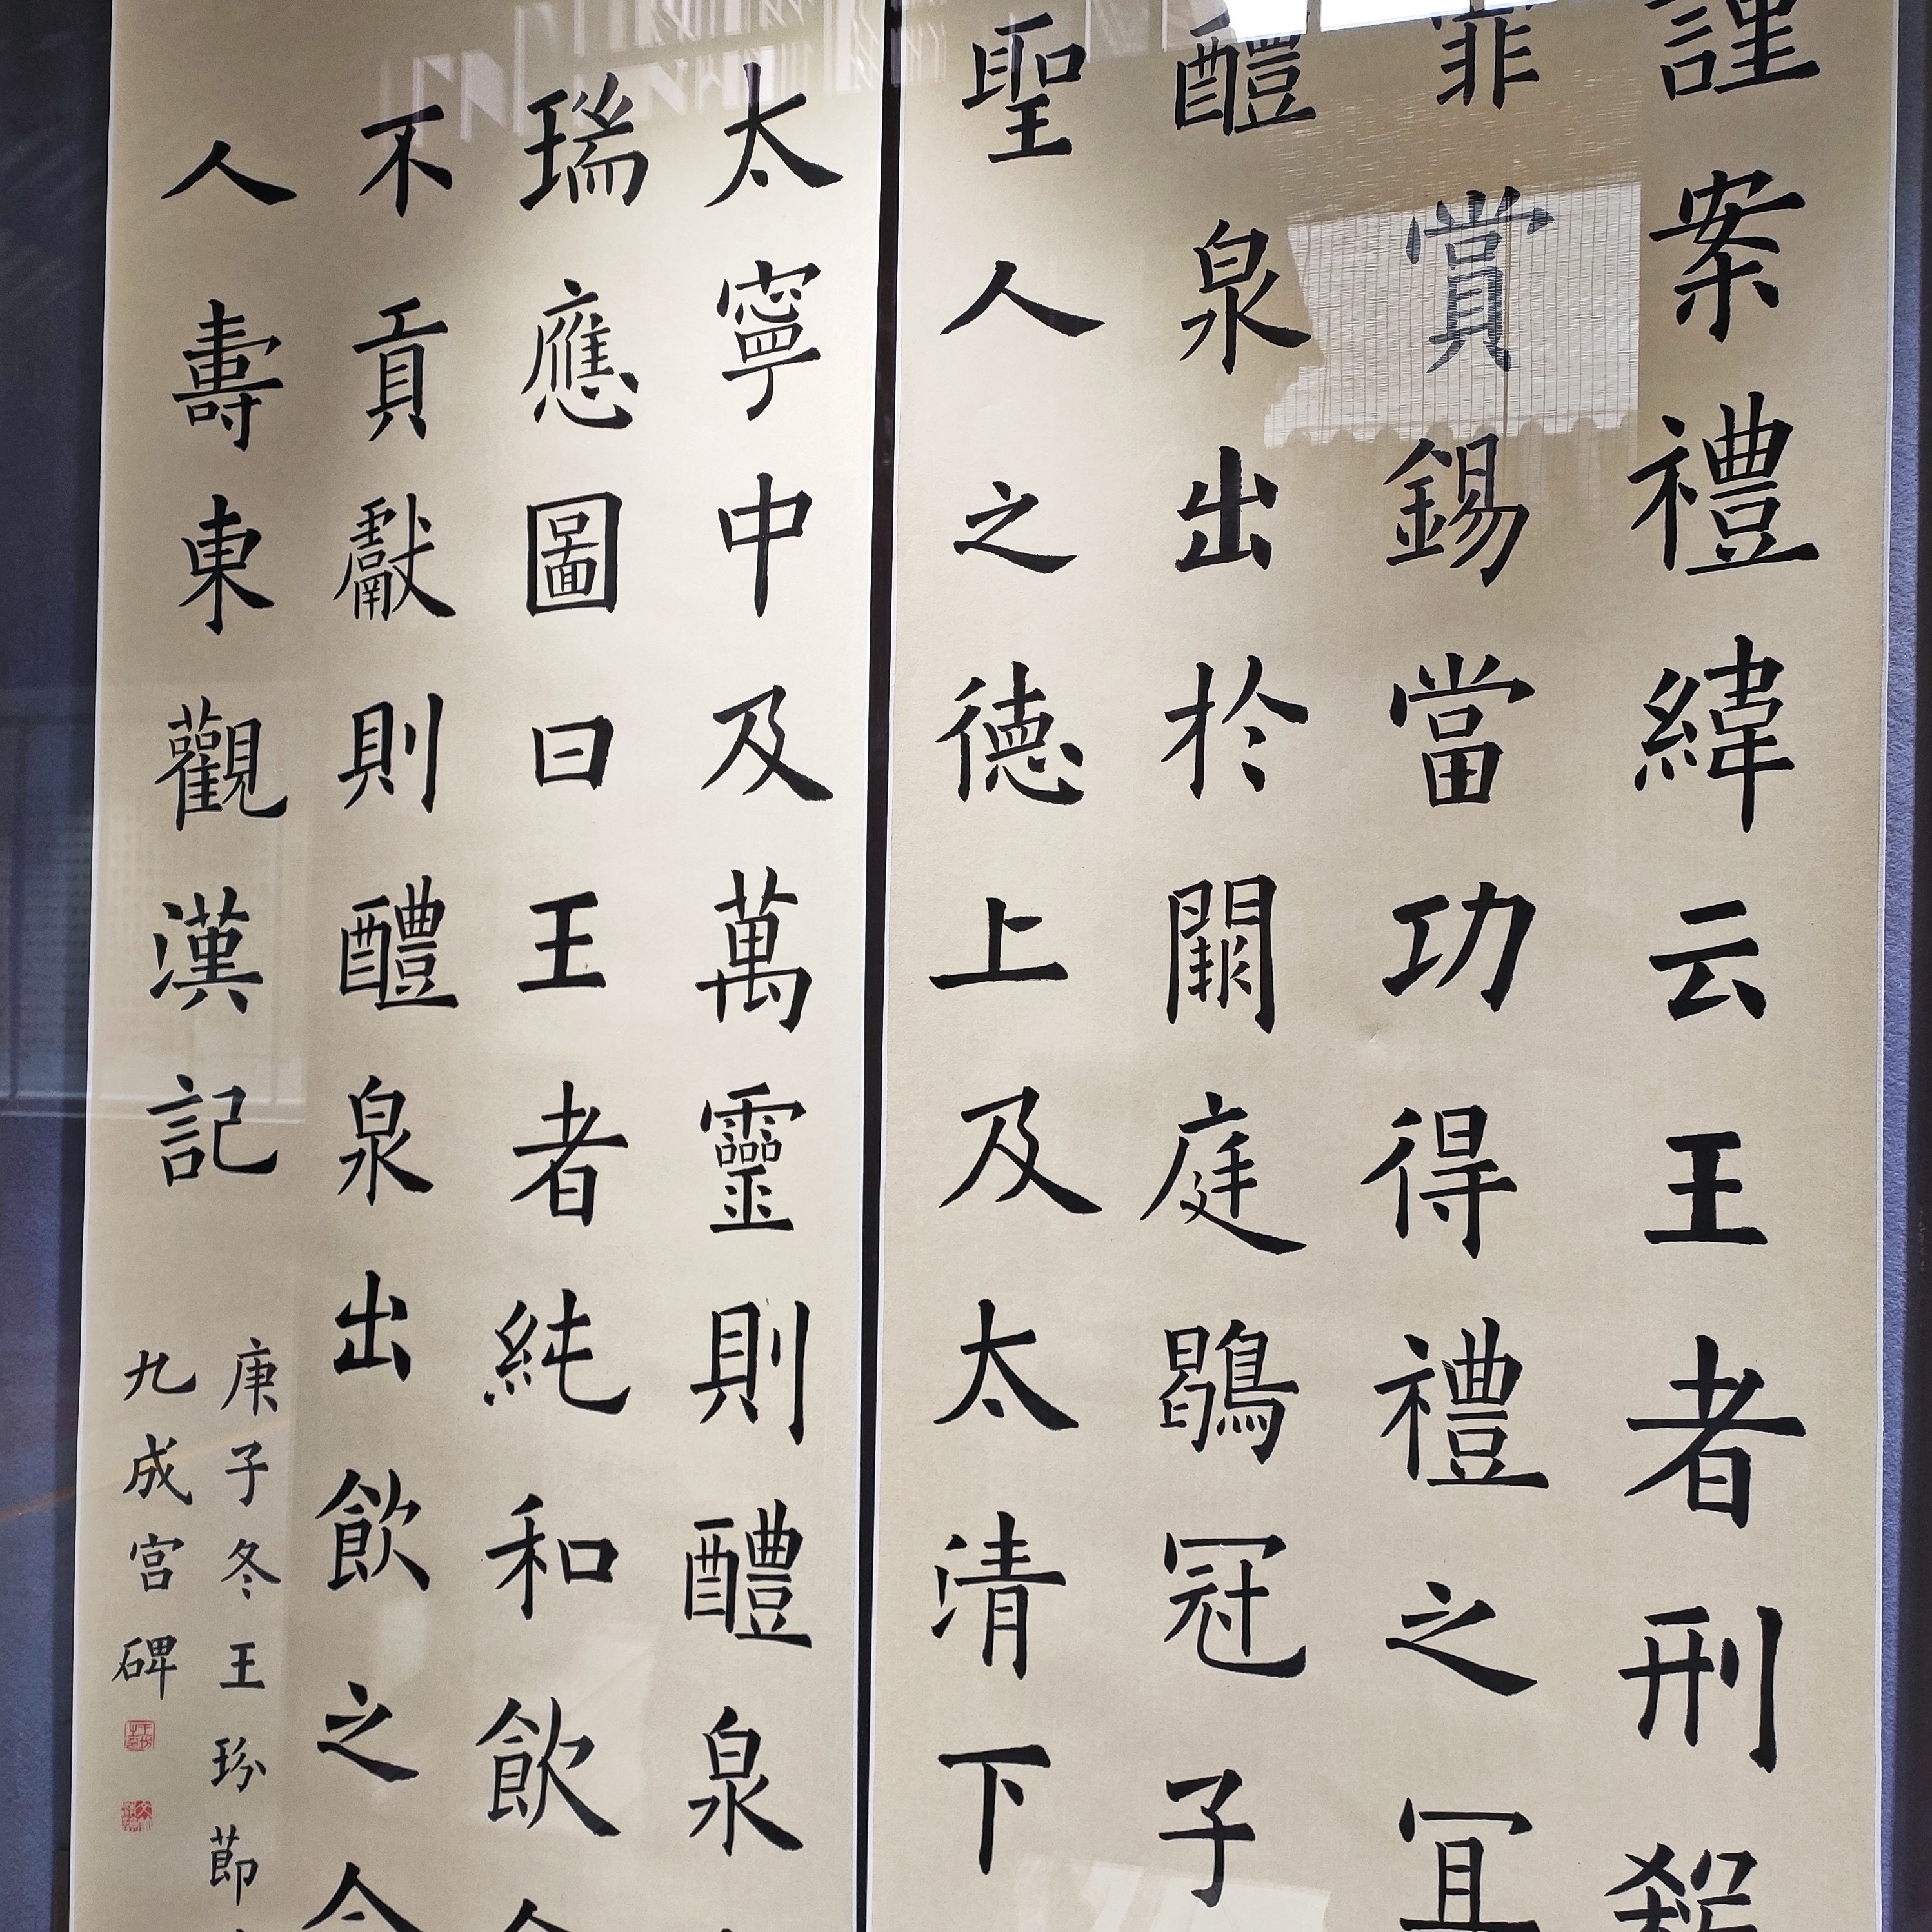 謹案禮緯云王者刑殺
罪賞錫當功得禮之宜
醴泉出於闕庭鶡冠子
聖人之德上及太清下
太寧中及萬靈則醴泉
瑞應圖曰王者純和飲
不貢獻則醴泉出飲之令
人壽東觀漢記
庚子冬王玢節
九成宫碑